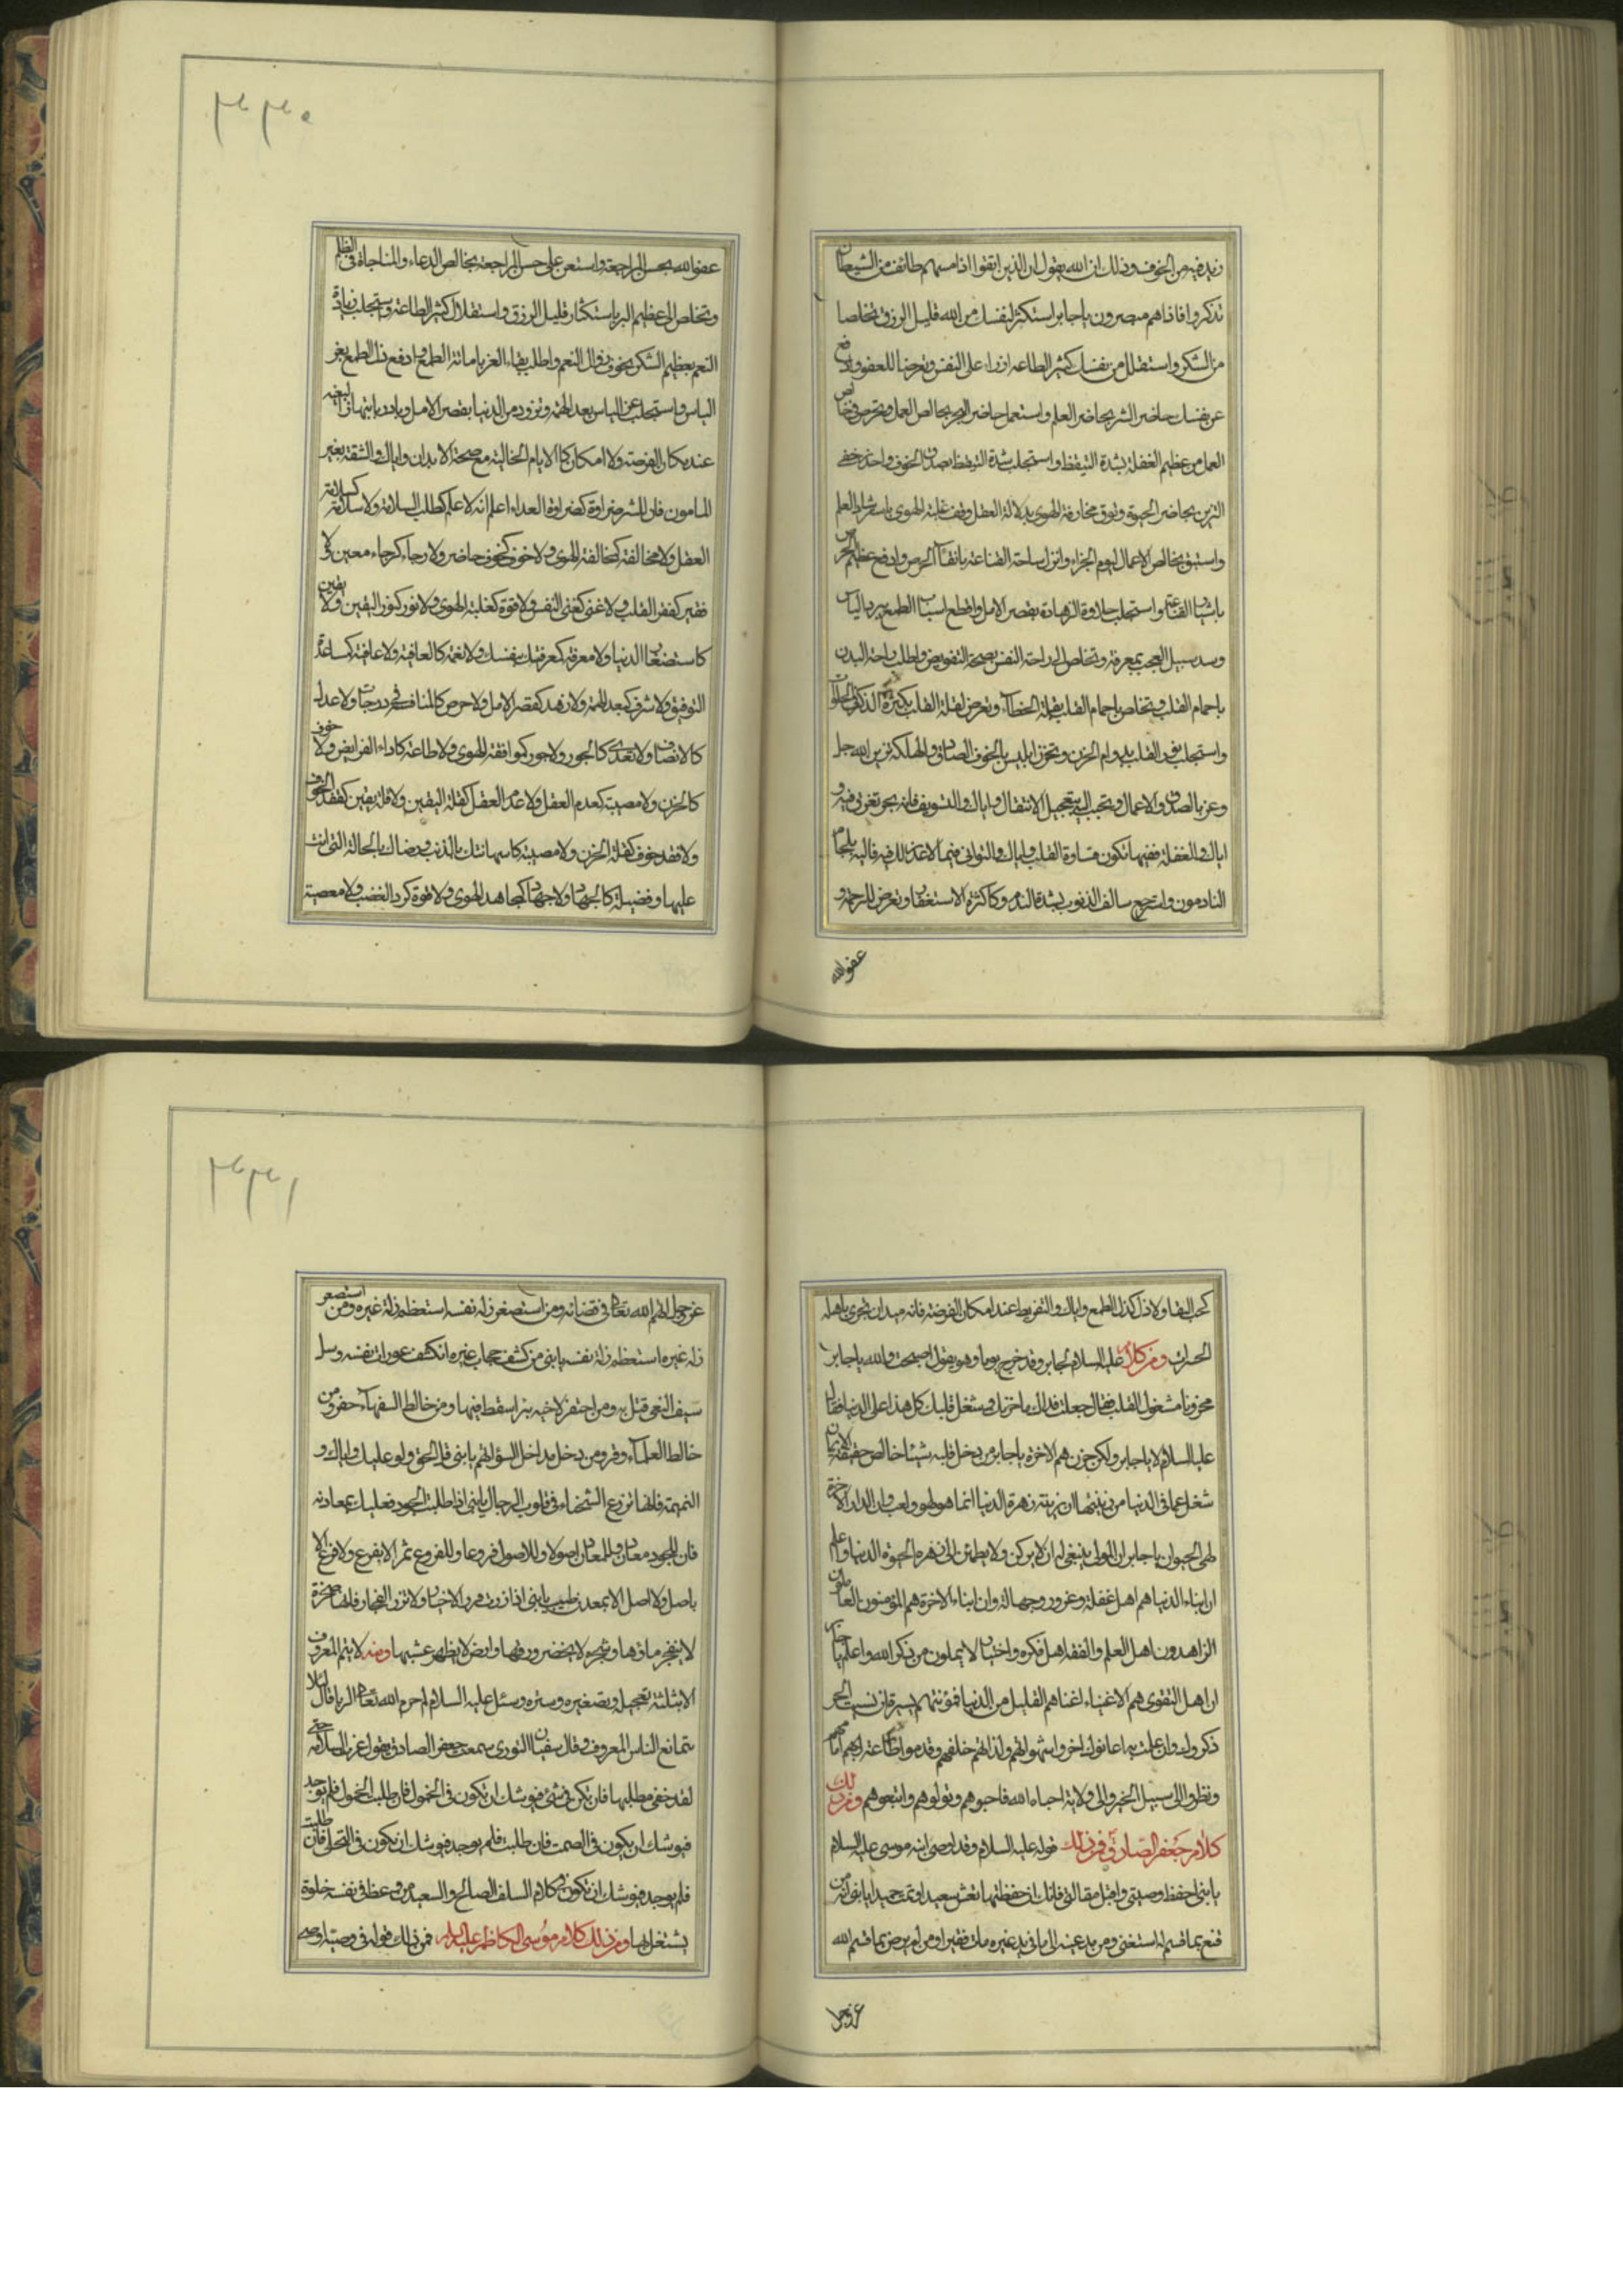 زيد فيه من الخوف وذلك ان الله يقول ان الذين اتقوا اذا مسهم طائف من الشيطان
تذكروا فاذا هم مبصرون يا جابر استكثر لنفسك من الله قليل الرزق تخلصا
من الشكر واستقلل من نفسك كثير الطاعه ازراء على النفس وتعرضا للعفو وادفع
عن نفسك حاضر الشر بحاضر العلم واستعمل حاضر العلم بخالص العمل وتحرز في خالص
العمل من عظيم الغفلة بشدة التيقظ واستجلب شدة التيقظ بصدق الخوف واحذر خفى
التزين بحاضر الحيوة وتوق مجازفة الهوى بدلالة العقل وقف عند غلبة الهوى باسترشاد العلم
واستبق خالص الاعمال ليوم الجزاء وانزل ساحة القناعة باتقاء الحرص وادفع عظيم الحرص
بايثار القناعة واستجلب حلاوة الزهادة بقصر الامل واقطع اسباب الطمع ببرد الياس
وسد سبيل العجب بمعرفة وتخلص الى راحة النفس بصحة التفويض واطلب راحة البدن
باجمام القلب وتخلص باجمام القلب بقلة الخطاء وتعرض لقلة القلب بكثرة الذكر فى الخلوات
واستجلب نور القلب بدوام الحزن وتحرز ابليس بالخوف الصادق والهلكة تزين الله جل
وعز بالصدق والاعمال وتحبب اليه بتعجيل الانتقال واياك والتسويف فانه بحر تغرق فيه و
اياك والغفلة ففيها تكون قساوة القلب واياك والتوانى فيما لا عذر لك فيه فاليه يلجا
النادمون واسترجع سالف الذنوب بشدة الندم وكثرة الاستغفار وتعرض للرحمة و
عفو الله
٣٣٠
عفو الله بحسن المراجعة واستعن على حسن المراجعة بخالص الدعاء والمناجاة فى الظلم
وتخلص الى عظيم البر باستكثار قليل الرزق واستقلال كثير الطاعة واستجلب زيادة
النعم بعظيم الشكر بخوف زوال النعم واطلب بقاء العز باماتة الطمع وادفع ذل الطمع بعز
الياس واستجلب عز الياس ببعد الهمة وتزود من الدنيا بقصر الامل وبادر بانتهاز البغية
عند مكان الفرصة ولا امكان كالايام الخالية مع صحة الابدان واياك والثقة بغير
المامون فان للشر ضراوة كضراوة الغذاء اعلم انه لا علم كطلب السلامة ولا سلامة كسلامة
العقل ولا مخالفة كمخالفة الهوى ولا خوف كخوف حاضر ولا رجاء كرجاء معين ولا
فقر كفقر القلب ولا غنى كغنى النفس ولا قوة كغلبة الهوى ولا نور كنور اليقين ولا يقين
كاستصغار الدنيا ولا معرفة كمعرفتك بنفسك ولا نعمة كالعافية ولا عافية كساعدة
التوفيق ولا شرف كبعد الهمة ولا زهد كقصر الامل ولا حرص كالمنافسة فى درجات ولا عدل
كالانصاف ولا تعدى كالجور ولا جور كموافقة الهوى ولا طاعة كاداء الفرايض ولا خوف
كالحزن ولا مصيبة كعدم العقل ولا عدم العقل كقلة اليقين ولا قلة يقين كفقد الخوف
ولا فقد خوف كقلة الحزن ولا مصيبة كاستهانتك بالذنب ورضاك بالحالة التى انت
عليها ولا فضيلة كالجهاد ولا جهاد كمجاهد الهوى ولا قوة كرد الغضب ولا معصية
كحب البقا ولا ذل كذل الطمع واياك والتفريط عند امكان الفرصة فانه ميدان تجرى باهله
الخسران ومن كلامه عليه السلام لجابر وقد خرج يوما وهو يقول اصبحت والله يا جابر
محزونا مشغول القلب فقال جعلت فداك ما حزنك وشغل قلبك كل هذا على الدنيا فقال
عليه السلام لا يا جابر ولكن حزن هم الاخرة يا جابر من دخل قلبه شيئا خالص حقيقة الايمان
شغل عما فى الدنيا من زينتها ان زينة زهرة الدنيا انما هو لهو ولعب وان الدار الاخرة
لهى الحيوان يا جابر ان المؤمن لا ينبغى له ان لا يركن ولا يطمئن الى زهرة الحيوة الدنيا واعلم
ان ابناء الدنيا هم اهل غفلة وغرور وجهالة وان ابناء الاخرة هم المؤمنون العاملون
الزاهدون اهل العلم والفقه اهل فكره واختبار لا يملون من ذكر الله واعلم يا جابر
ان اهل التقوى هم الاغنياء اغناهم القليل من الدنيا فمؤنتهم يسيرة ان نسيت الخير
ذكروك وان عملت به اعانوك اخروا شهواتهم ولذاتهم خلفهم وقدموا طاعة ربهم امامهم
ونظروا الى سبيل الخير والى ولاية احباء الله فاحبوهم وتولوهم واتبعوهم ومن ذلك
كلام جعفر الصادق ع فمن ذلك قوله عليه السلام وقد اوصى ابنه موسى عليه السلام
يا بنى احفظ وصيتى واقبل مقالتى فانك ان حفظتها تعش سعيدا وتمت حميدا يا بنى انه من
قنع بما قسم له استغنى ومن مد عينه الى ما فى يد غيره مات فقيرا ومن لم يرض بما قسم الله
عز وجل
٣٣١
عز وجل اتهم الله تعالى فى قضائه ومن استصغر زلة نفسه استعظم زلة غيره ومن استصغر
زلة غيره استعظم زلة نفسه يا بنى من كشف حجاب غيره انكشف عورات نفسه وسل
سيف البغى قتل به ومن احتفر لاخيه بئرا سقط فيها ومن خالط السفهاء حقر ومن
خالط العلماء وقر ومن دخل مداخل السؤ اتهم يا بنى قل الحق ولو عليك واياك و
النميمة فانها تزرع الشحناء فى قلوب الرجال يا بنى اذا طلبت الجود فعليك بمعادنه
فان للجود معادن وللمعادن اصولا وللاصول فروعا وللفروع ثمر الا بفرع ولا فرع الا
باصل ولا اصل الا بمعدن طيب يا بنى اذا زرت فزر الاخيار ولا تزر الفجار فانها صخرة
لا ينفجر ماؤها وشجرة لا يخضر ورقها وارض لا يظهر عشبها ومنه لا يتم المعروف
الا بثلثة تعجيله وتصغيره وستره وسئل عليه السلام لم حرم الله تعالى الربا قال لئلا
يتمانع الناس المعروف وقال سفيان الثورى سمعت جعفر الصادق يقول عزت السلامة حتى
لقد خفى مطلبها فان تكن فى شئ فيوشك ان تكون فى الخمول فان طلبت الخمول فلم يوجد
فيوشك ان يكون فى الصمت فان طلبت فلم يوجد فيوشك ان يكون فى التخلى فان طلبت
فلم يوجد فيوشك ان تكون فى كلام السلف الصالح والسعيد من وعظ فى نفسه خلوة
يشتغل بها ومن ذلك كلام موسى الكاظم عليه السلام فمن ذلك قوله فى وصية اوصى